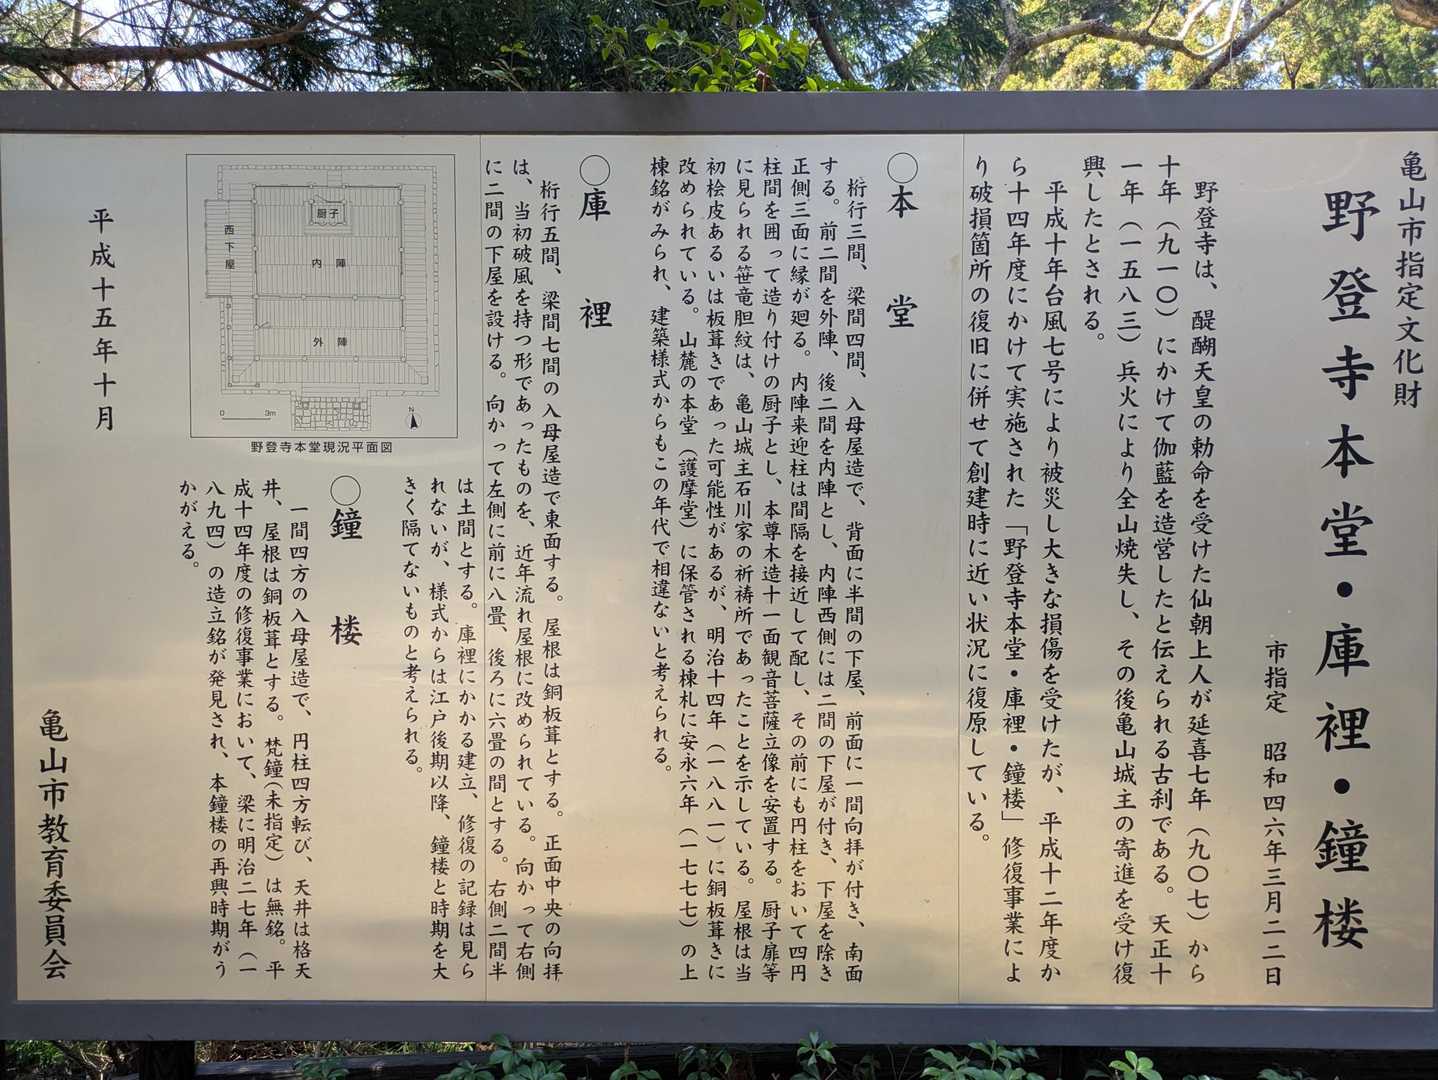 亀山市指定文化財
野登寺本堂・庫裡・鐘楼
市指定　昭和四六年三月二二日
野登寺は、醍醐天皇の勅命を受けた仙朝上人が延喜七年（九〇七）から
十年（九一〇）にかけて伽藍を造営したと伝えられる古刹である。天正十
一年（一五八三）兵火により全山焼失し、その後亀山城主の寄進を受け復
興したとされる。
平成十年台風七号により被災し大きな損傷を受けたが、平成十二年度か
ら十四年度にかけて実施された「野登寺本堂・庫裡・鐘楼」修復事業によ
り破損箇所の復旧に併せて創建時に近い状況に復原している。
〇本堂
桁行三間、梁間四間、入母屋造で、背面に半間の下屋、前面に一間向拝が付き、南面
する。前二間を外陣、後二間を内陣とし、内陣西側には二間の下屋が付き、下屋を除き
正側三面に縁が廻る。内陣来迎柱は間隔を接近して配し、その前にも円柱をおいて四円
柱間を囲って造り付けの厨子とし、本尊木造十一面観音菩薩立像を安置する。厨子扉等
に見られる笹竜胆紋は、亀山城主石川家の祈祷所であったことを示している。屋根は当
初桧皮あるいは板葺きであった可能性があるが、明治十四年（一八八一）に銅板葺きに
改められている。山麓の本堂（護摩堂）に保管される棟札に安永六年（一七七七）の上
棟銘がみられ、建築様式からもこの年代で相違ないと考えられる。
〇庫裡
桁行五間、梁間七間の入母屋造で東面する。屋根は銅板葺とする。正面中央の向拝
は、当初破風を持つ形であったものを、近年流れ屋根に改められている。向かって右側
に二間の下屋を設ける。向かって左側に前に八畳、後ろに六畳の間とする。右側二間半
は土間とする。庫裡にかかる建立、修復の記録は見ら
れないが、様式からは江戸後期以降、鐘楼と時期を大
きく隔てないものと考えられる。
〇鐘楼
一間四方の入母屋造で、円柱四方転び、天井は格天
井、屋根は銅板葺とする。梵鐘（未指定）は無銘。平
成十四年度の修復事業において、梁に明治二七年（一
八九四）の造立銘が発見され、本鐘楼の再興時期がう
かがえる。
厨子
西下屋
内陣
外陣
0 3m
N
野登寺本堂現況平面図
平成十五年十月
亀山市教育委員会